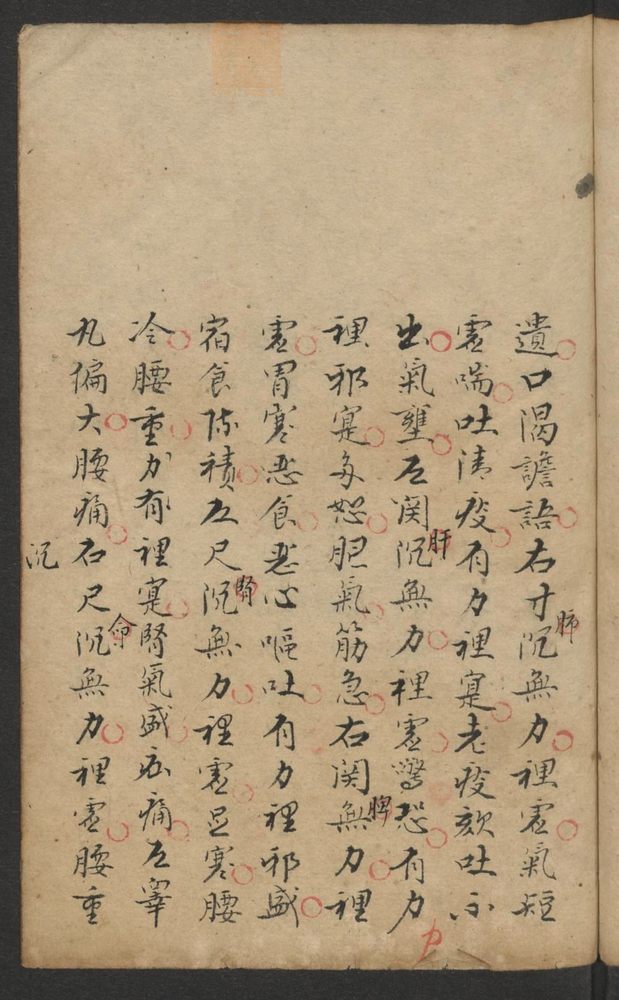 遺口渴譫語右寸沉無力裡虛氣短
肺
虛喘吐清痰有力裡寔老痰欬吐不
出氣壅左関沉無力裡虛驚恐有力
肝
力
裡邪寔多怒胆氣筋急右関無力裡
脾
虛胃寒惡食惡心嘔吐有力裡邪盛
宿食陈積左尺沉無力裡虛足寒腰
腎
冷腰重力有裡寔腎氣盛疝痛左睾
丸偏大腰痛右尺沉無力裡虛腰重
命
沉